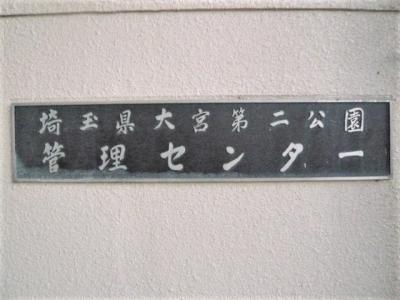 埼玉県大宮第二公園
管理センター